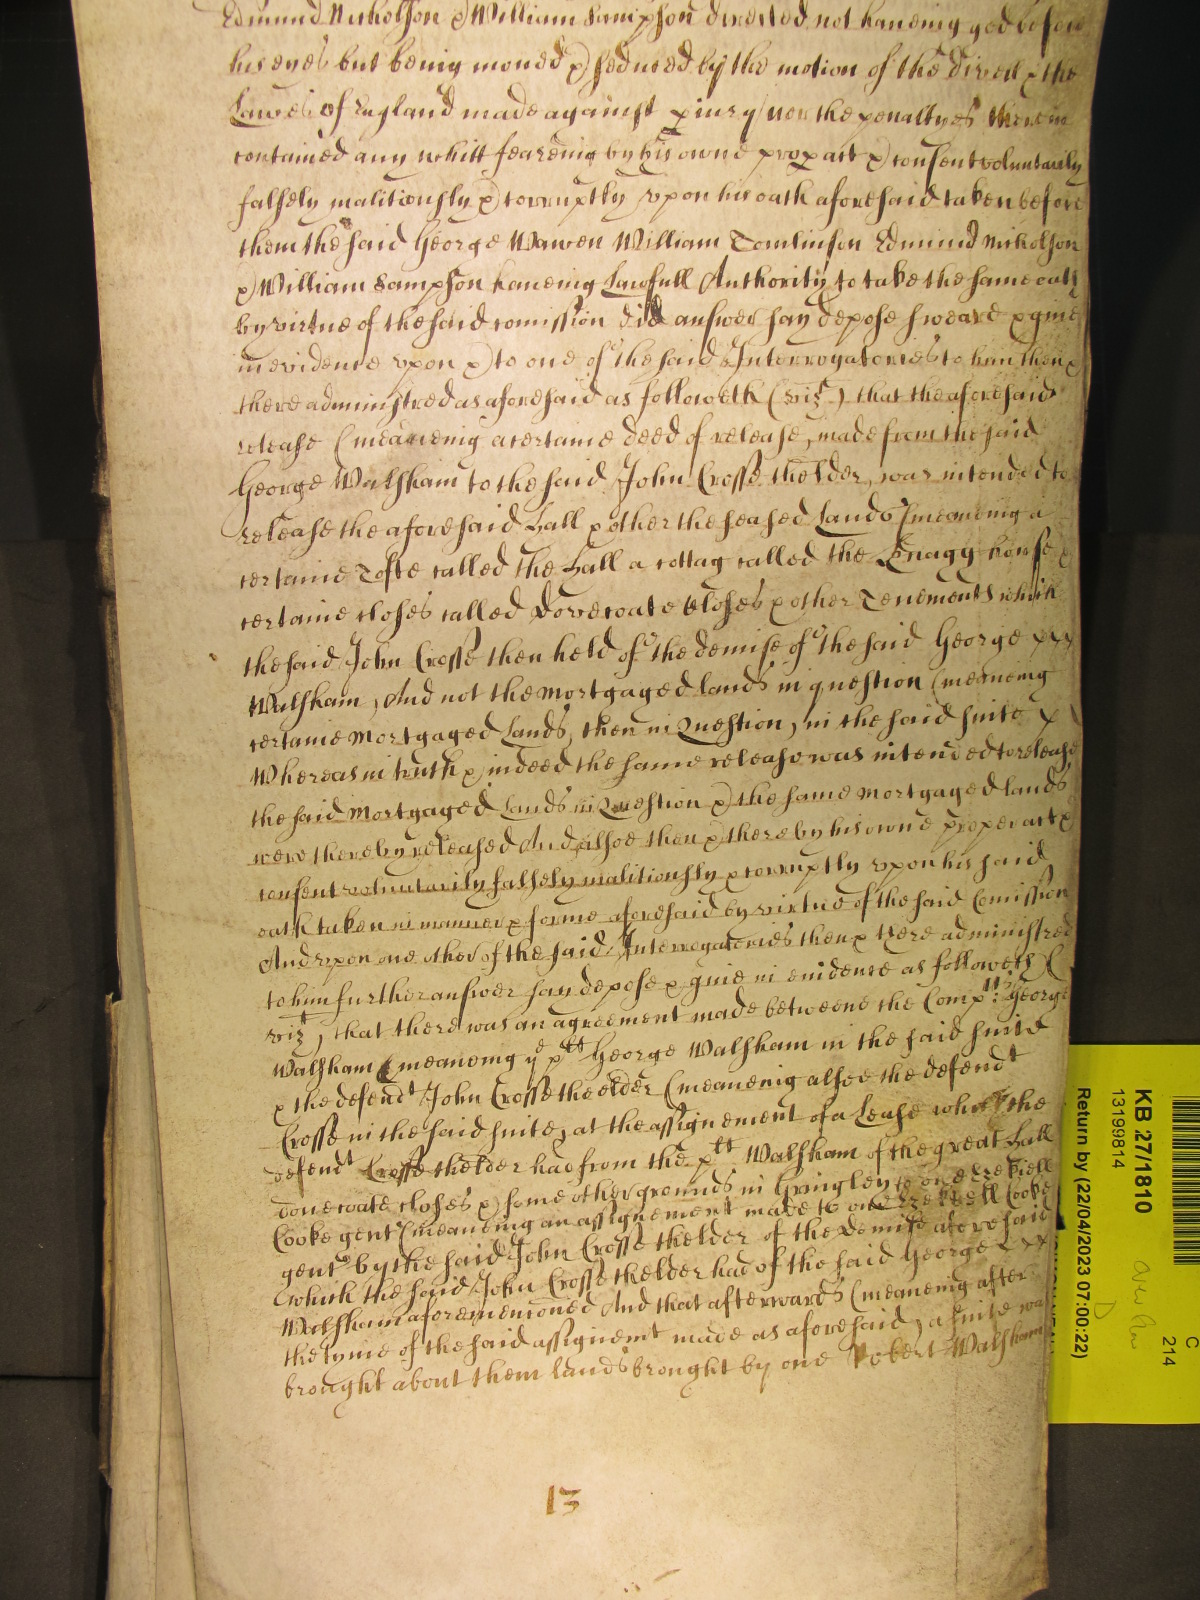 Edmund Nicholson & William Sampson directed not haveing god before
his eyes but being moved & seduced by the motion of the divell & the
Lawes of England made against periury nor the penaltyes therein
contained any whitt feareing by his owne proper act & consent voluntarily
falsely malitiously & corruptly vpon his oath aforesaid taken before
them the said George Wawen William Tomlinson Edmund Nicholson
& William Sampson haveing Lawfull Authority to take the same oath
by virtue of the said comission did answer say depose sweare & giue
in evidence vpon & to one of the said Interrogatories to him then &
there administred as aforesaid as followeth (vizt) that the aforesaid
release (meaneing a certaine deed of release, made from the said
George Walsham to the said John Crosse thelder, was intended to
release the aforesaid Hall & other the leased Lands (meaneing a
certaine Tofte called the Hall a cottag called the Knagg house &
certaine closes called Dovecoate Closes & other Tenements which
the said John Crosse then held of the demise of the said George xxx
Walsham, And not the mortgaged lands in question (meaneing
certaine mortgaged Lands, then in Question, in the said suite &
Whereas in truth & indeed the same release was intended to release
the said mortgaged Lands in Question & the same mortgaged lands
were thereby released And alsoe then & there by his owne proper act &
consent voluntarily falsely malitiously & corruptly vpon his said
oath taken in manner & forme aforesaid by virtue of the said Comission
And vpon one other of the said Interrogatories then & there administred
to him further answer say depose & giue in euidence as followeth (
vizt, that there was an agreement made betweene the Complt: George
Walsham (meaneing ye plt George Walsham in the said suite
& the defendt John Crosse the elder (meaneing alsoe the defendt
Crosse in the said suite, at the assignement of a Lease which the
defendt Crosse thelder had from the plt Walsham of the great Hall
dovecoate closes & some other grounds in Gringley to one Ezekiell
Cooke gent (meaneing an assignement made to one Ezekiell Cooke
gent by the said John Crosse thelder of the Demise aforesaid
which the said John Crosse thelder had of the said George xxx
Walsham aforemencioned And that afterwards (meaneing after
the tyme of the said assignemt made as aforesaid, a suite was
brought about them lands brought by one Robert Walsham
13
KB 27/1810
13199814
Return by (22/04/2023 07:00:22)
C
214
D